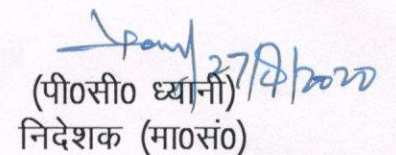 27/8/2020
(पी०सी० ध्यानी)
निदेशक (मा०सं०)